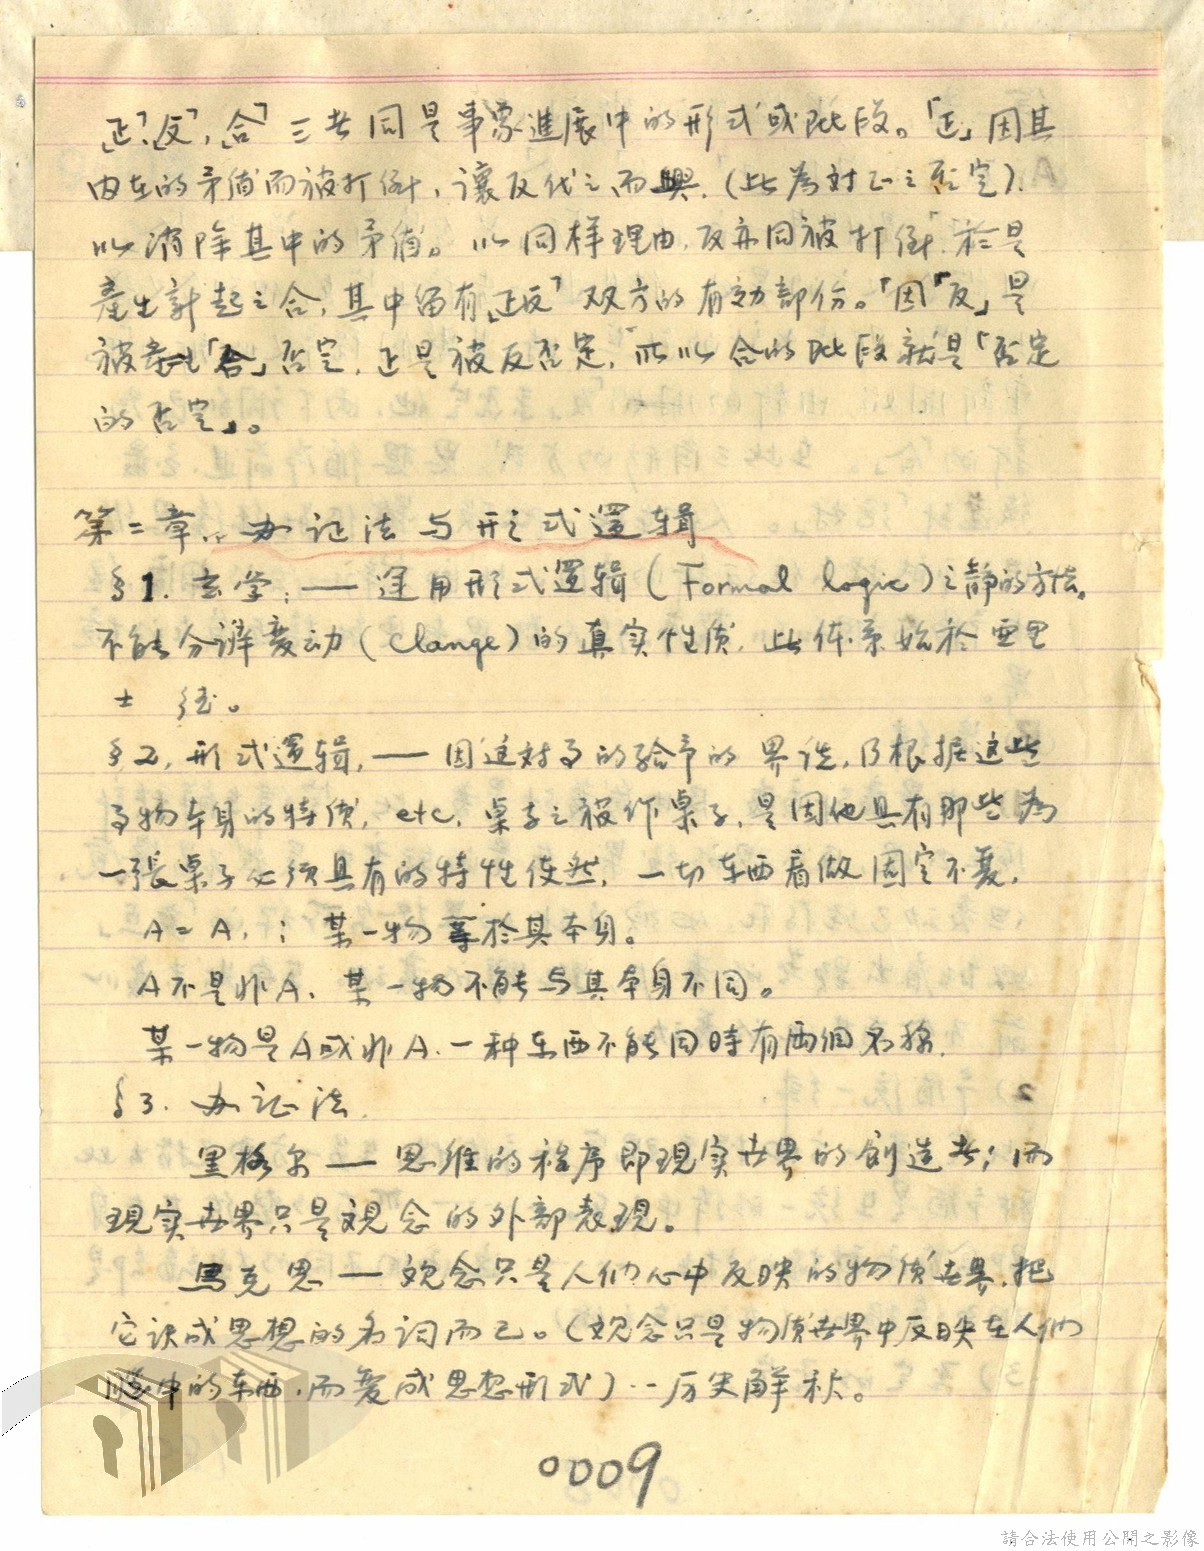 「正」「反」,「合」三者同是事象進展中的形式或阶段。「正」因其
内在的矛盾而被打倒,讓反代之而興,(此為対正之否定).
以消除其中的矛盾。以同样理由,反亦同被打倒,於是
產生新起之合,其中留有「正反」双方的有効部份。「因「反」是
被「合」否定,正是被反否定,所以合的阶段就是「否定
的否定」。
第二章.. 办证法与形式逻辑
§1. 玄学:— 运用形式逻辑(Formal logic)之静的方法。
不能分譁变动(Change)的真实性质,此体系始於亚里
士 德。
§2, 形式逻辑,— 因这対于的給予的界说,乃根据这些
事物本身的特质, etc, 桌子之被作桌子,是因他具有那些為
一張桌子必须具有的特性使然, 一切东西看做固定不变,
A = A,; 某一物等於其本身。
A不是非A, 某一物不能与其本身不同。
某一物是A或非A.一种东西不能同時有两個名称.
§3. 办证法.
黑格尔 — 思维的程序即現实世界的創造者;而
現实世界只是观念的外部表現。
馬克思 — 观念只是人们心中反映的物质世界.把
它译成思想的名词而已。(观念只是物质世界中反映在人们
腦中的东西,而变成思想形式)--历史解释。
0009
請合法使用公開之影像